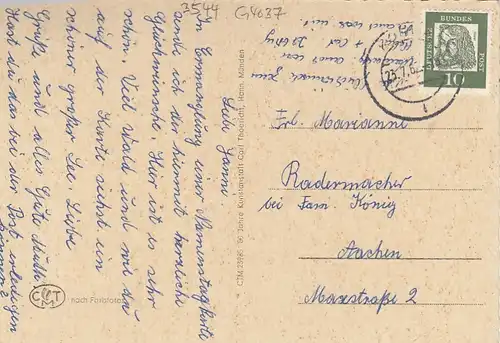 3544 G4037
Liebe Janni!
In Ermanglung einer Namenstagskarte
sende ich dir hiermit herzliche
Glückwünsche. Hier ist es sehr
schön. Viel Wald und wie du
auf der Karte siehst ein
schöner großer See. Liebe
Grüße und alles Gute
Hast du das bei der Post erledigen
können?
CTM
nach Farbfotos
CTM 23895 90 Jahre Kunstanstalt Carl Thoericht, Hann. Münden
23.7.6
DEUTSCHE BUNDESPOST
10
Frl. Marianne
Radermacher
bei Fam. König
Aachen
Maxstraße 2